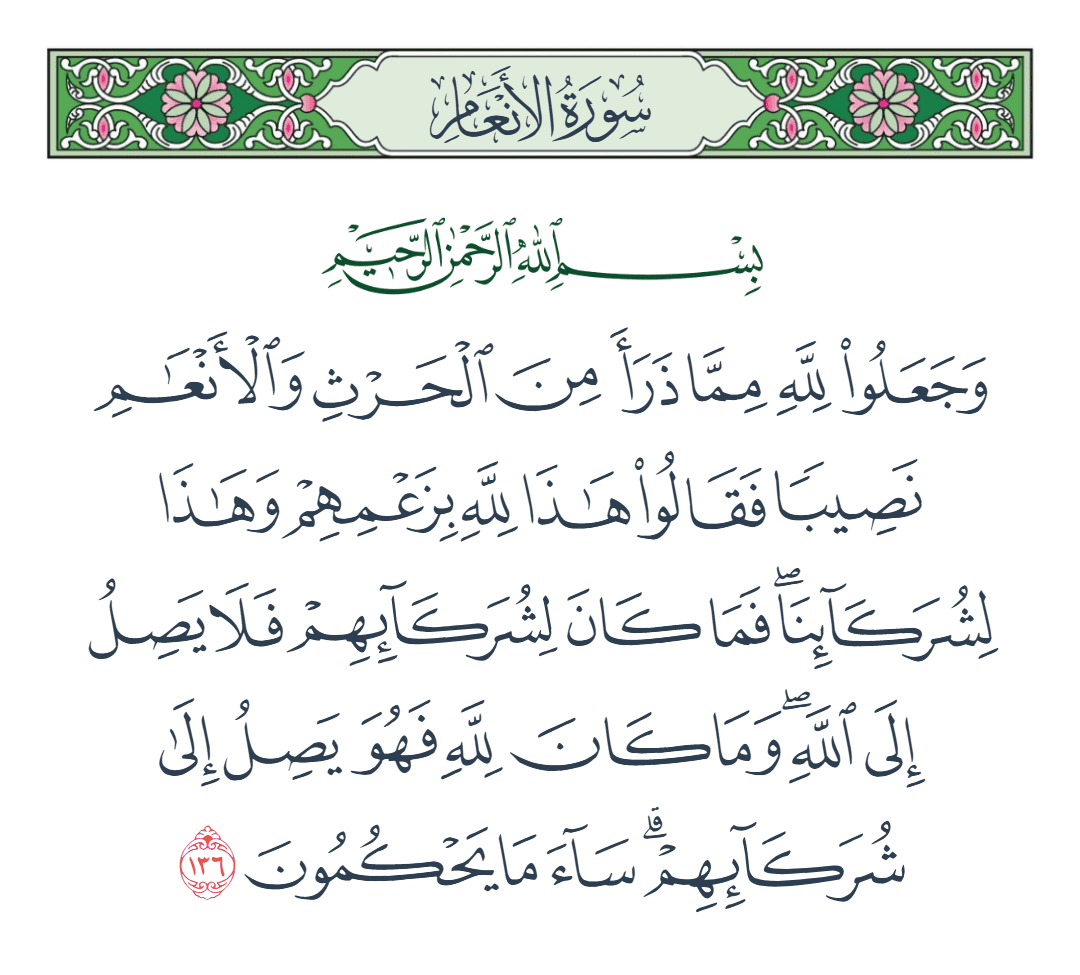 سُورَةُ الأَنْعَامِ
بِسْمِ ٱللَّهِ ٱلرَّحْمَٰنِ ٱلرَّحِيمِ
وَجَعَلُوا۟ لِلَّهِ مِمَّا ذَرَأَ مِنَ ٱلْحَرْثِ وَٱلْأَنْعَـٰمِ
نَصِيبًا فَقَالُوا۟ هَـٰذَا لِلَّهِ بِزَعْمِهِمْ وَهَـٰذَا
لِشُرَكَآئِنَا ۖ فَمَا كَانَ لِشُرَكَآئِهِمْ فَلَا يَصِلُ
إِلَى ٱللَّهِ ۖ وَمَا كَانَ لِلَّهِ فَهُوَ يَصِلُ إِلَىٰ
شُرَكَآئِهِمْ ۗ سَآءَ مَا يَحْكُمُونَ ١٣٦